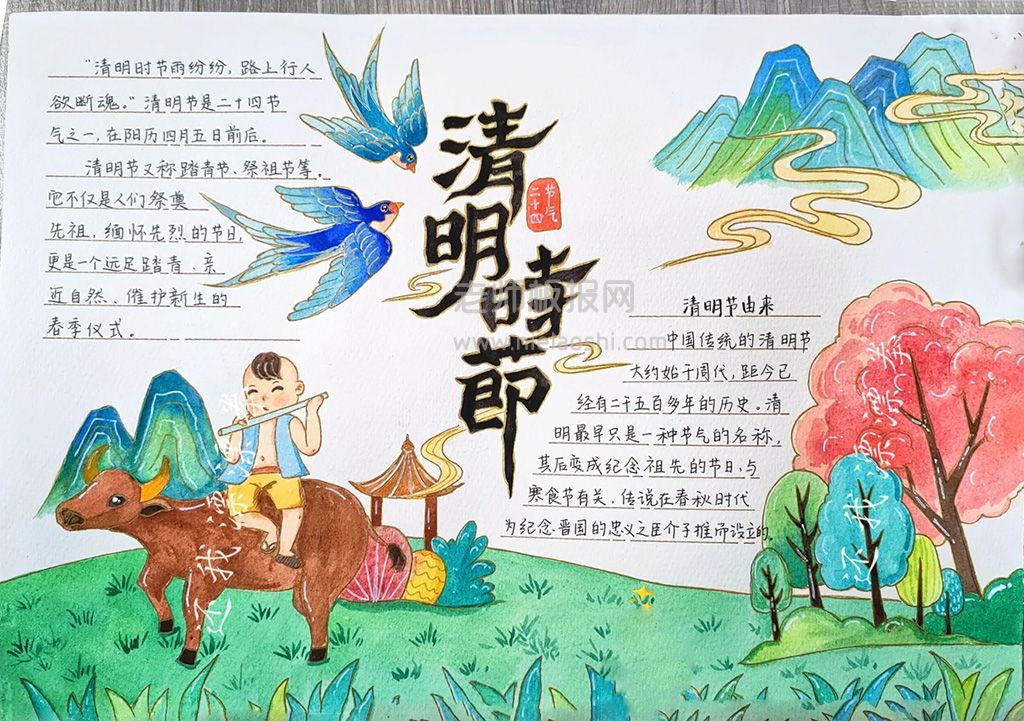 "清明时节雨纷纷，路上行人
欲断魂。"清明节是二十四节
气之一，在阳历四月五日前后。
清明节又称踏青节、祭祖节等。
它不仅是人们祭奠
先祖，缅怀先烈的节日，
更是一个远足踏青、亲
近自然、催护新生的
春季仪式。
清明时節
二十四
节气
清明节由来
中国传统的清明节
大约始于周代，距今已
经有二千五百多年的历史。清
明最早只是一种节气的名称，
其后变成纪念祖先的节日，与
寒食节有关，传说在春秋时代
为纪念晋国的忠义之臣介子推而设立的。
老师板报网
www.mielaoshi.com